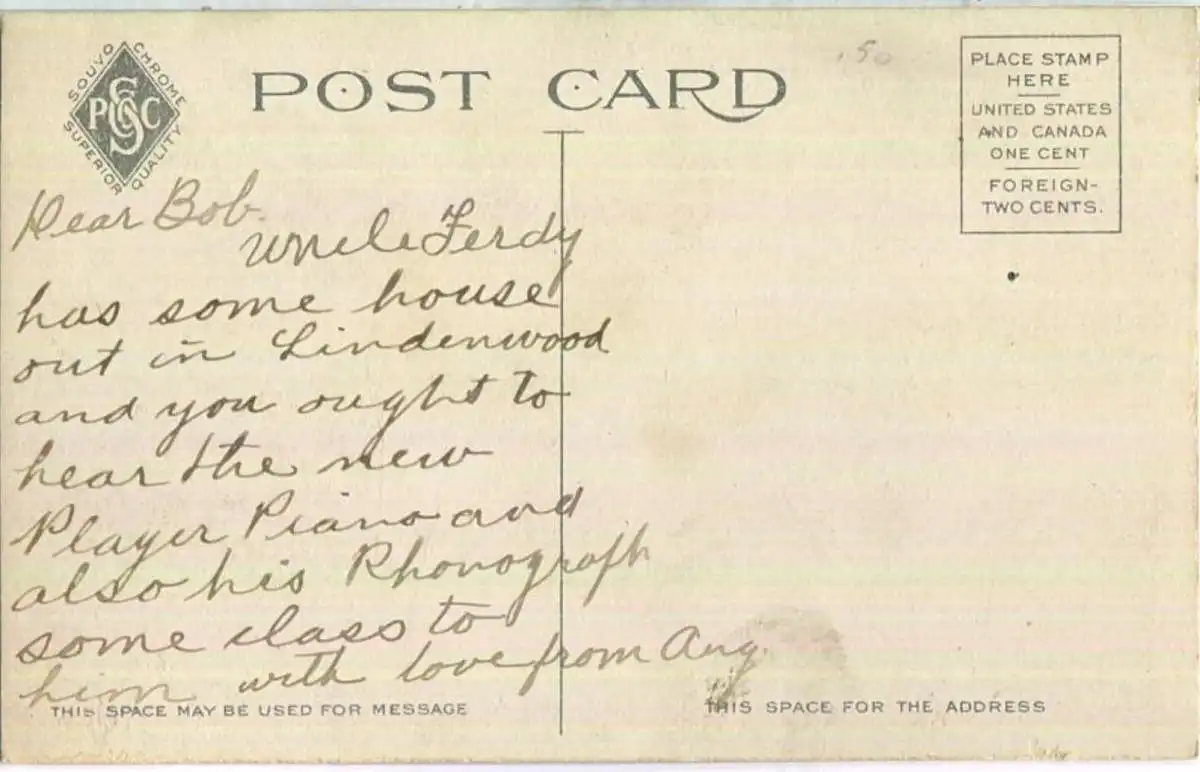 SOUVO CHROME
PCSC
SUPERIOR QUALITY
POST CARD
.50
PLACE STAMP
HERE
UNITED STATES
AND CANADA
ONE CENT
FOREIGN-
TWO CENTS.
Dear Bob.
Uncle Ferdy
has some house
out in Lindenwood
and you ought to
hear the new
Player Piano and
also his Phonograph
some class to
him with love from Aug.
THIS SPACE MAY BE USED FOR MESSAGE
THIS SPACE FOR THE ADDRESS